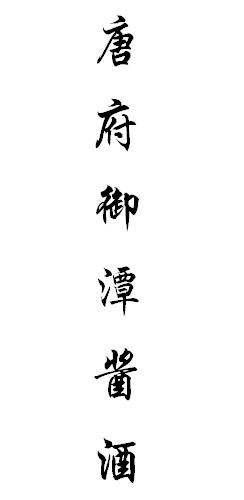 唐府御潭醬酒